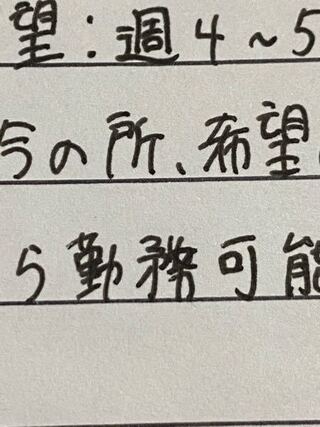 望：週4～5
今の所、希望
ら勤務可能